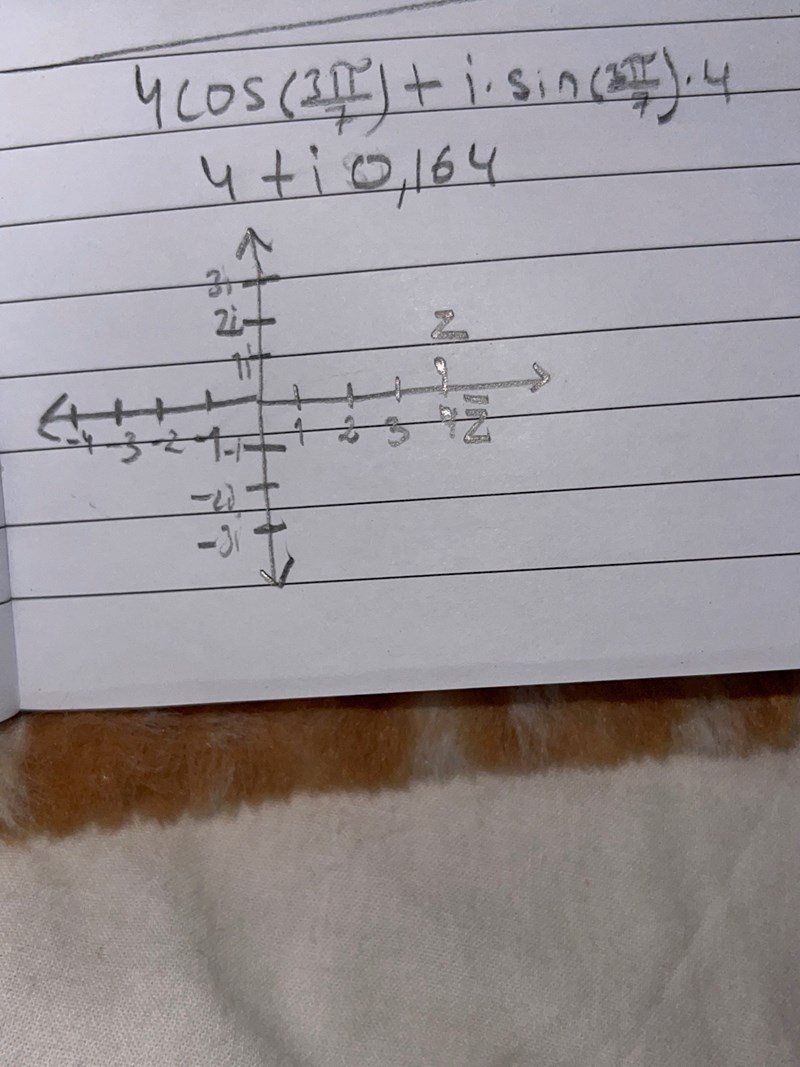 4cos(3π/7) + i·sin(3π/7)·4
4 + i 0,164
3i
2i
1i
Z
-4 -3 -2 -1 1 2 3 4 Z̄
-1
-2i
-3i